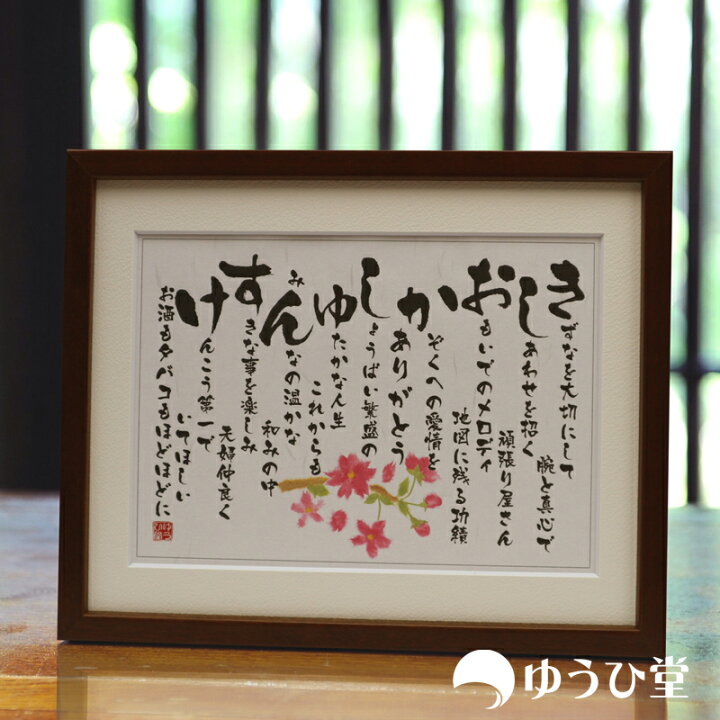 きずなを大切にして
腕と真心で
しあわせを招く
頑張り屋さん
おもいでのメロディ
地図に残る功績
かぞくへの愛情を
ありがとう
しょうばい繁盛の
ゆたかな人生
これからも
みんなの温かな
和みの中
すきな事を楽しみ
夫婦仲良く
けんこう第一で
いてほしい
お酒もタバコもほどほどに
ゆうひ堂